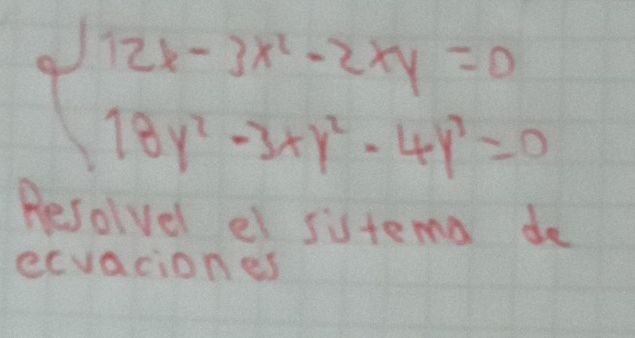 12x - 3x² - 2xy = 0
18y² - 3xy² - 4y³ = 0
Resolvel el sistema de
ecuaciones